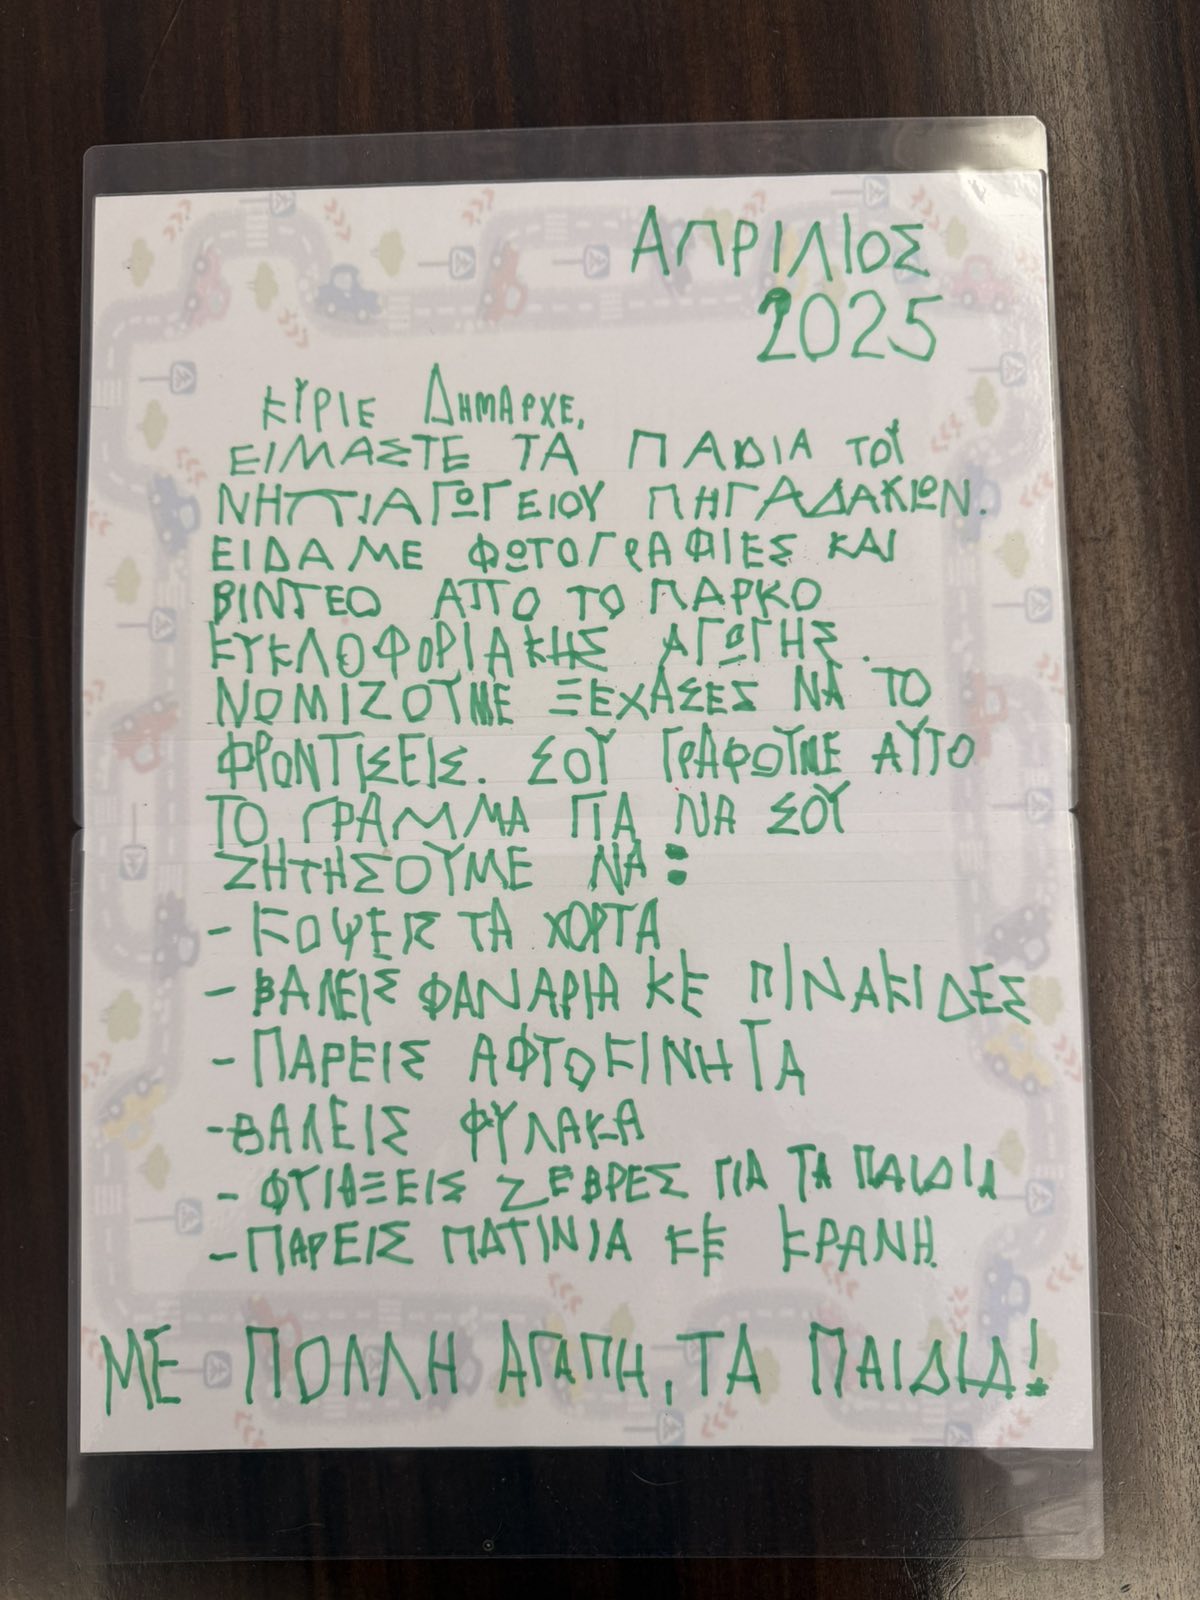 ΑΠΡΙΛΙΟΣ
2025
ΚΥΡΙΕ ΔΗΜΑΡΧΕ,
ΕΙΜΑΣΤΕ ΤΑ ΠΑΙΔΙΑ ΤΟΥ
ΝΗΠΙΑΓΩΓΕΙΟΥ ΠΗΓΑΔΑΚΙΩΝ.
ΕΙΔΑΜΕ ΦΩΤΟΓΡΑΦΙΕΣ ΚΑΙ
ΒΙΝΤΕΟ ΑΠΟ ΤΟ ΠΑΡΚΟ
ΚΥΚΛΟΦΟΡΙΑΚΗΣ ΑΓΩΓΗΣ.
ΝΟΜΙΖΟΥΜΕ ΞΕΧΑΣΕΣ ΝΑ ΤΟ
ΦΡΟΝΤΙΣΕΙΣ. ΣΟΥ ΓΡΑΦΟΥΜΕ ΑΥΤΟ
ΤΟ ΓΡΑΜΜΑ ΓΙΑ ΝΑ ΣΟΥ
ΖΗΤΗΣΟΥΜΕ ΝΑ:
- ΚΟΨΕΙΣ ΤΑ ΧΟΡΤΑ
- ΒΑΛΕΙΣ ΦΑΝΑΡΙΑ ΚΕ ΠΙΝΑΚΙΔΕΣ
- ΠΑΡΕΙΣ ΑΦΤΟΚΙΝΗΤΑ
- ΒΑΛΕΙΣ ΦΥΛΑΚΑ
- ΦΤΙΑΞΕΙΣ ΖΕΒΡΕΣ ΓΙΑ ΤΑ ΠΑΙΔΙΑ
- ΠΑΡΕΙΣ ΠΑΤΙΝΙΑ ΚΕ ΚΡΑΝΗ.
ΜΕ ΠΟΛΛΗ ΑΓΑΠΗ, ΤΑ ΠΑΙΔΙΑ!